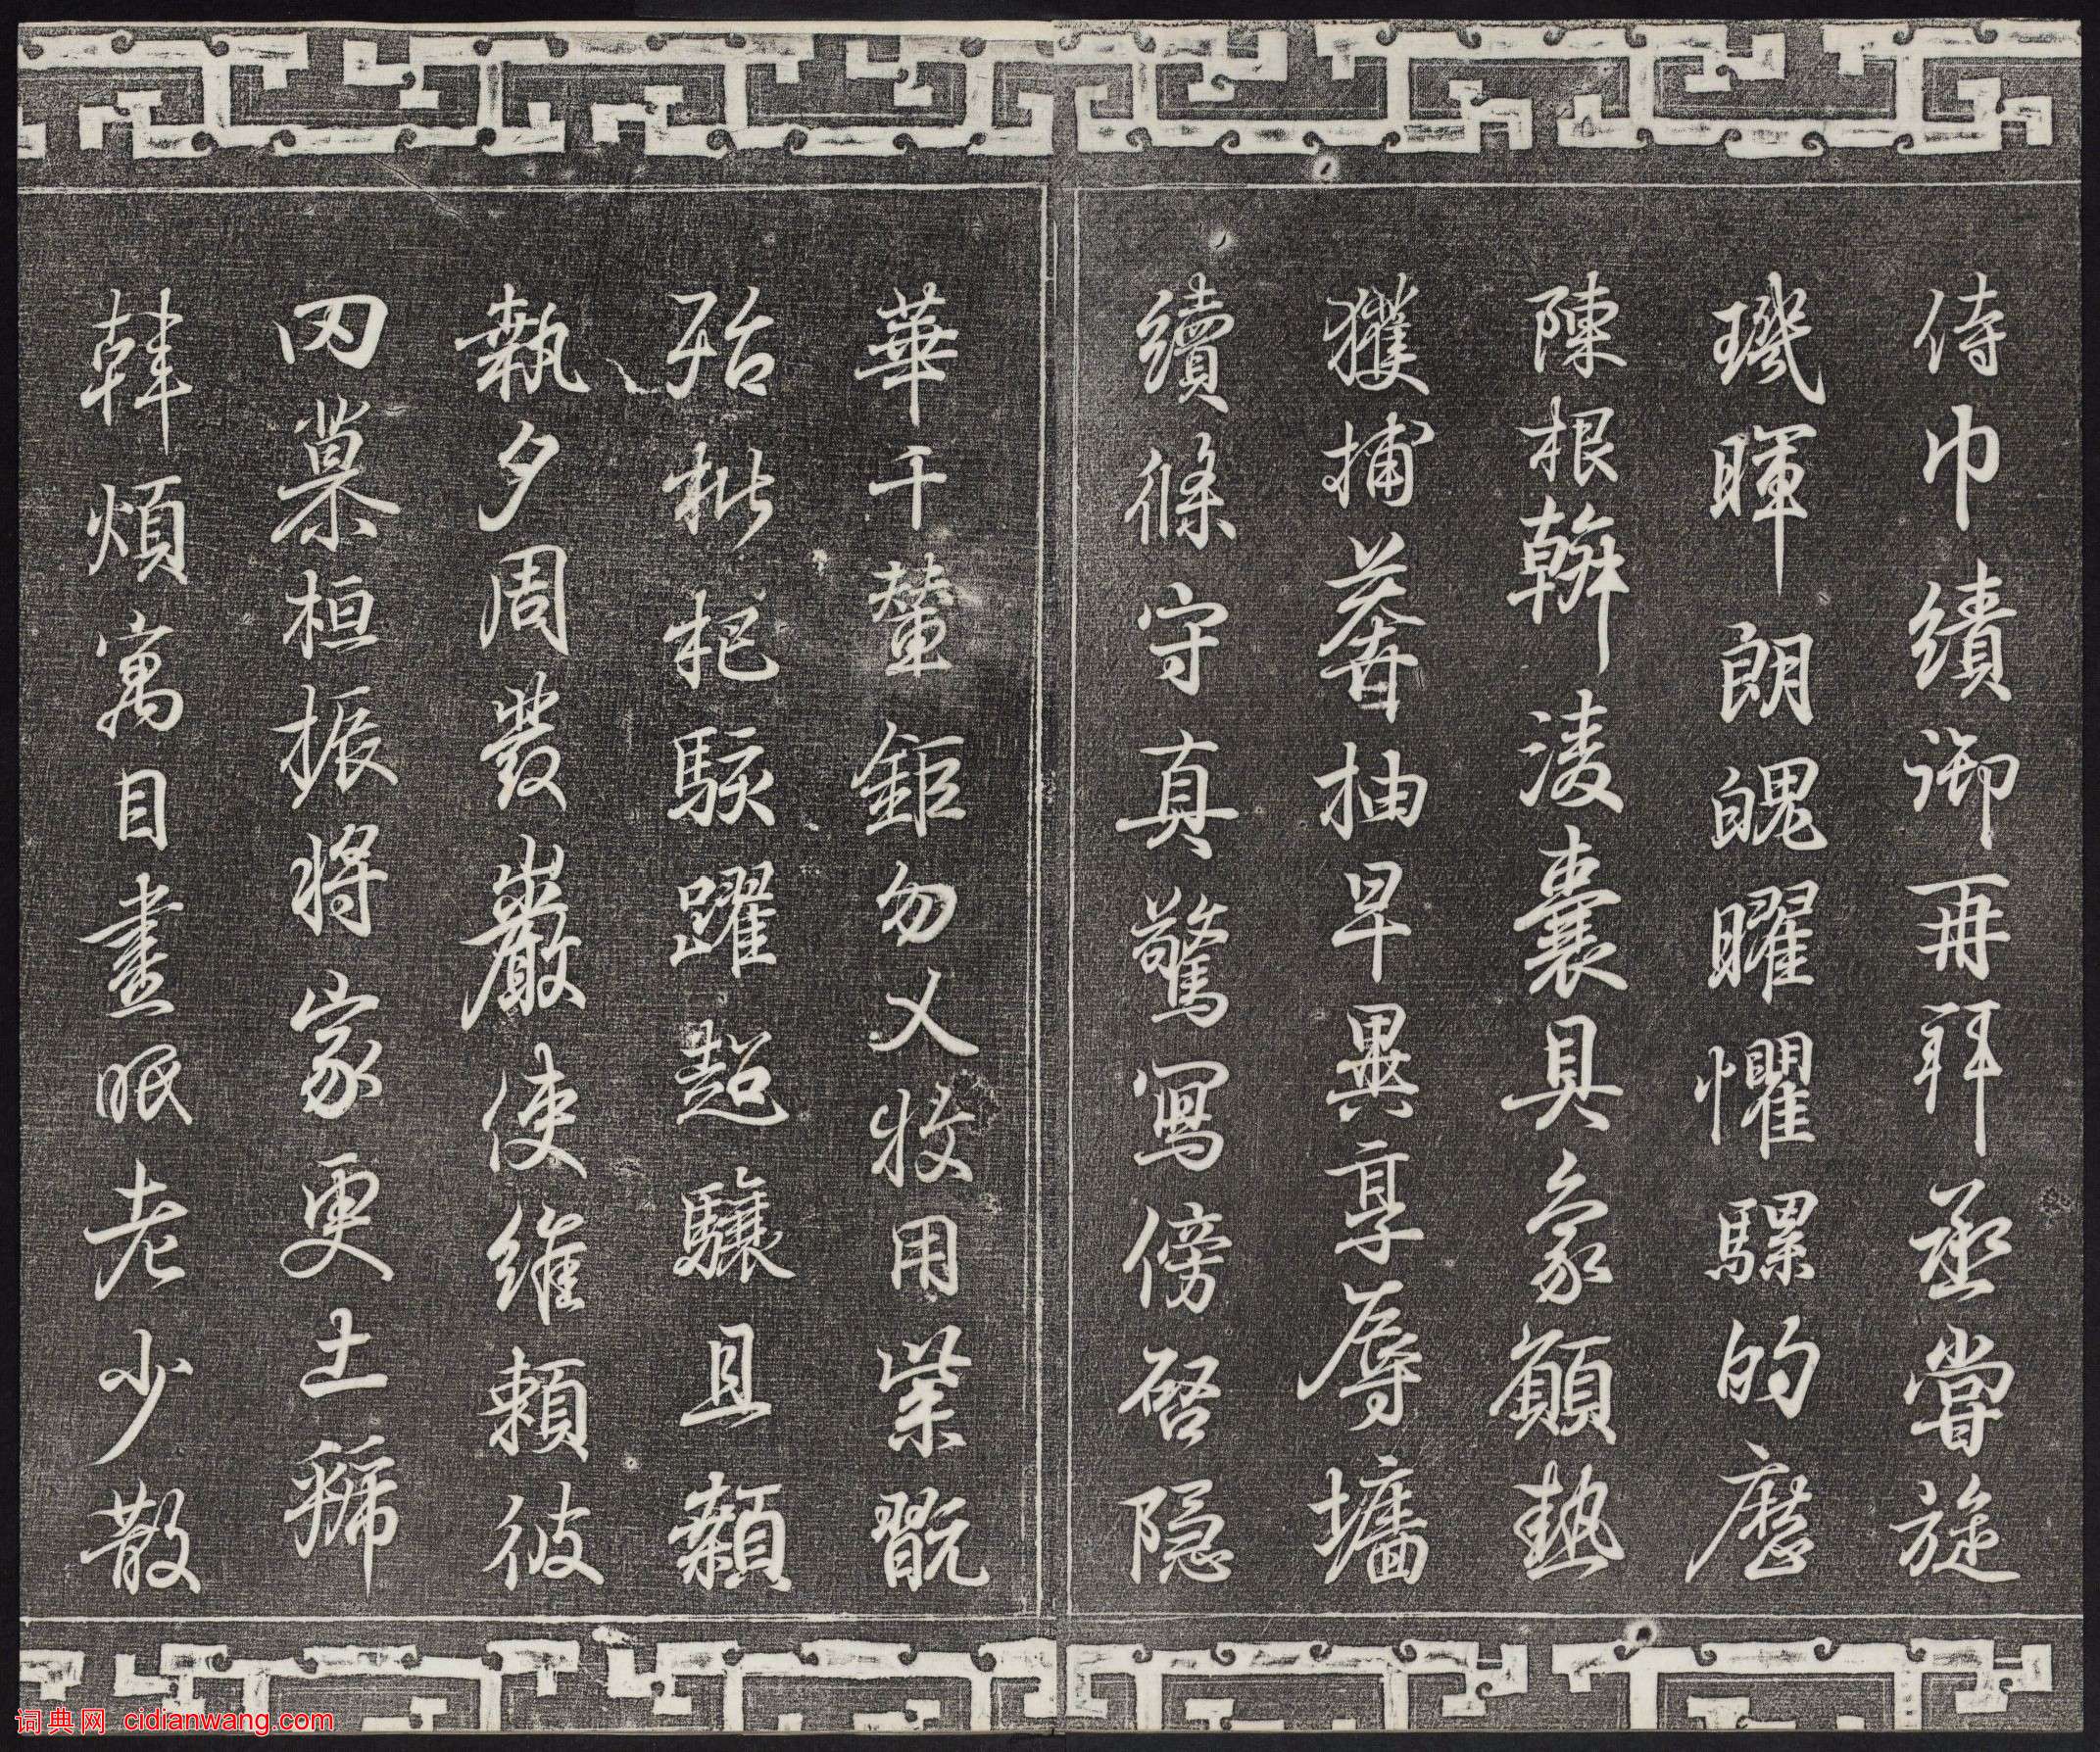 侍巾績御再拜丞嘗旋
璣暉朗魄曜懼騾的歷
陳根幹淩囊具象顧熱
獲捕莽抽早異享辱墉
續條守真驚寫傍啓隱
華千輦鉅勿乂牧用業翫
殆枇杞駭躍超驤且纇
執夕周發巖使維賴彼
罔巢桓振將家更土號
韓煩寓目晝眠老少散
词典网 cidianwang.com